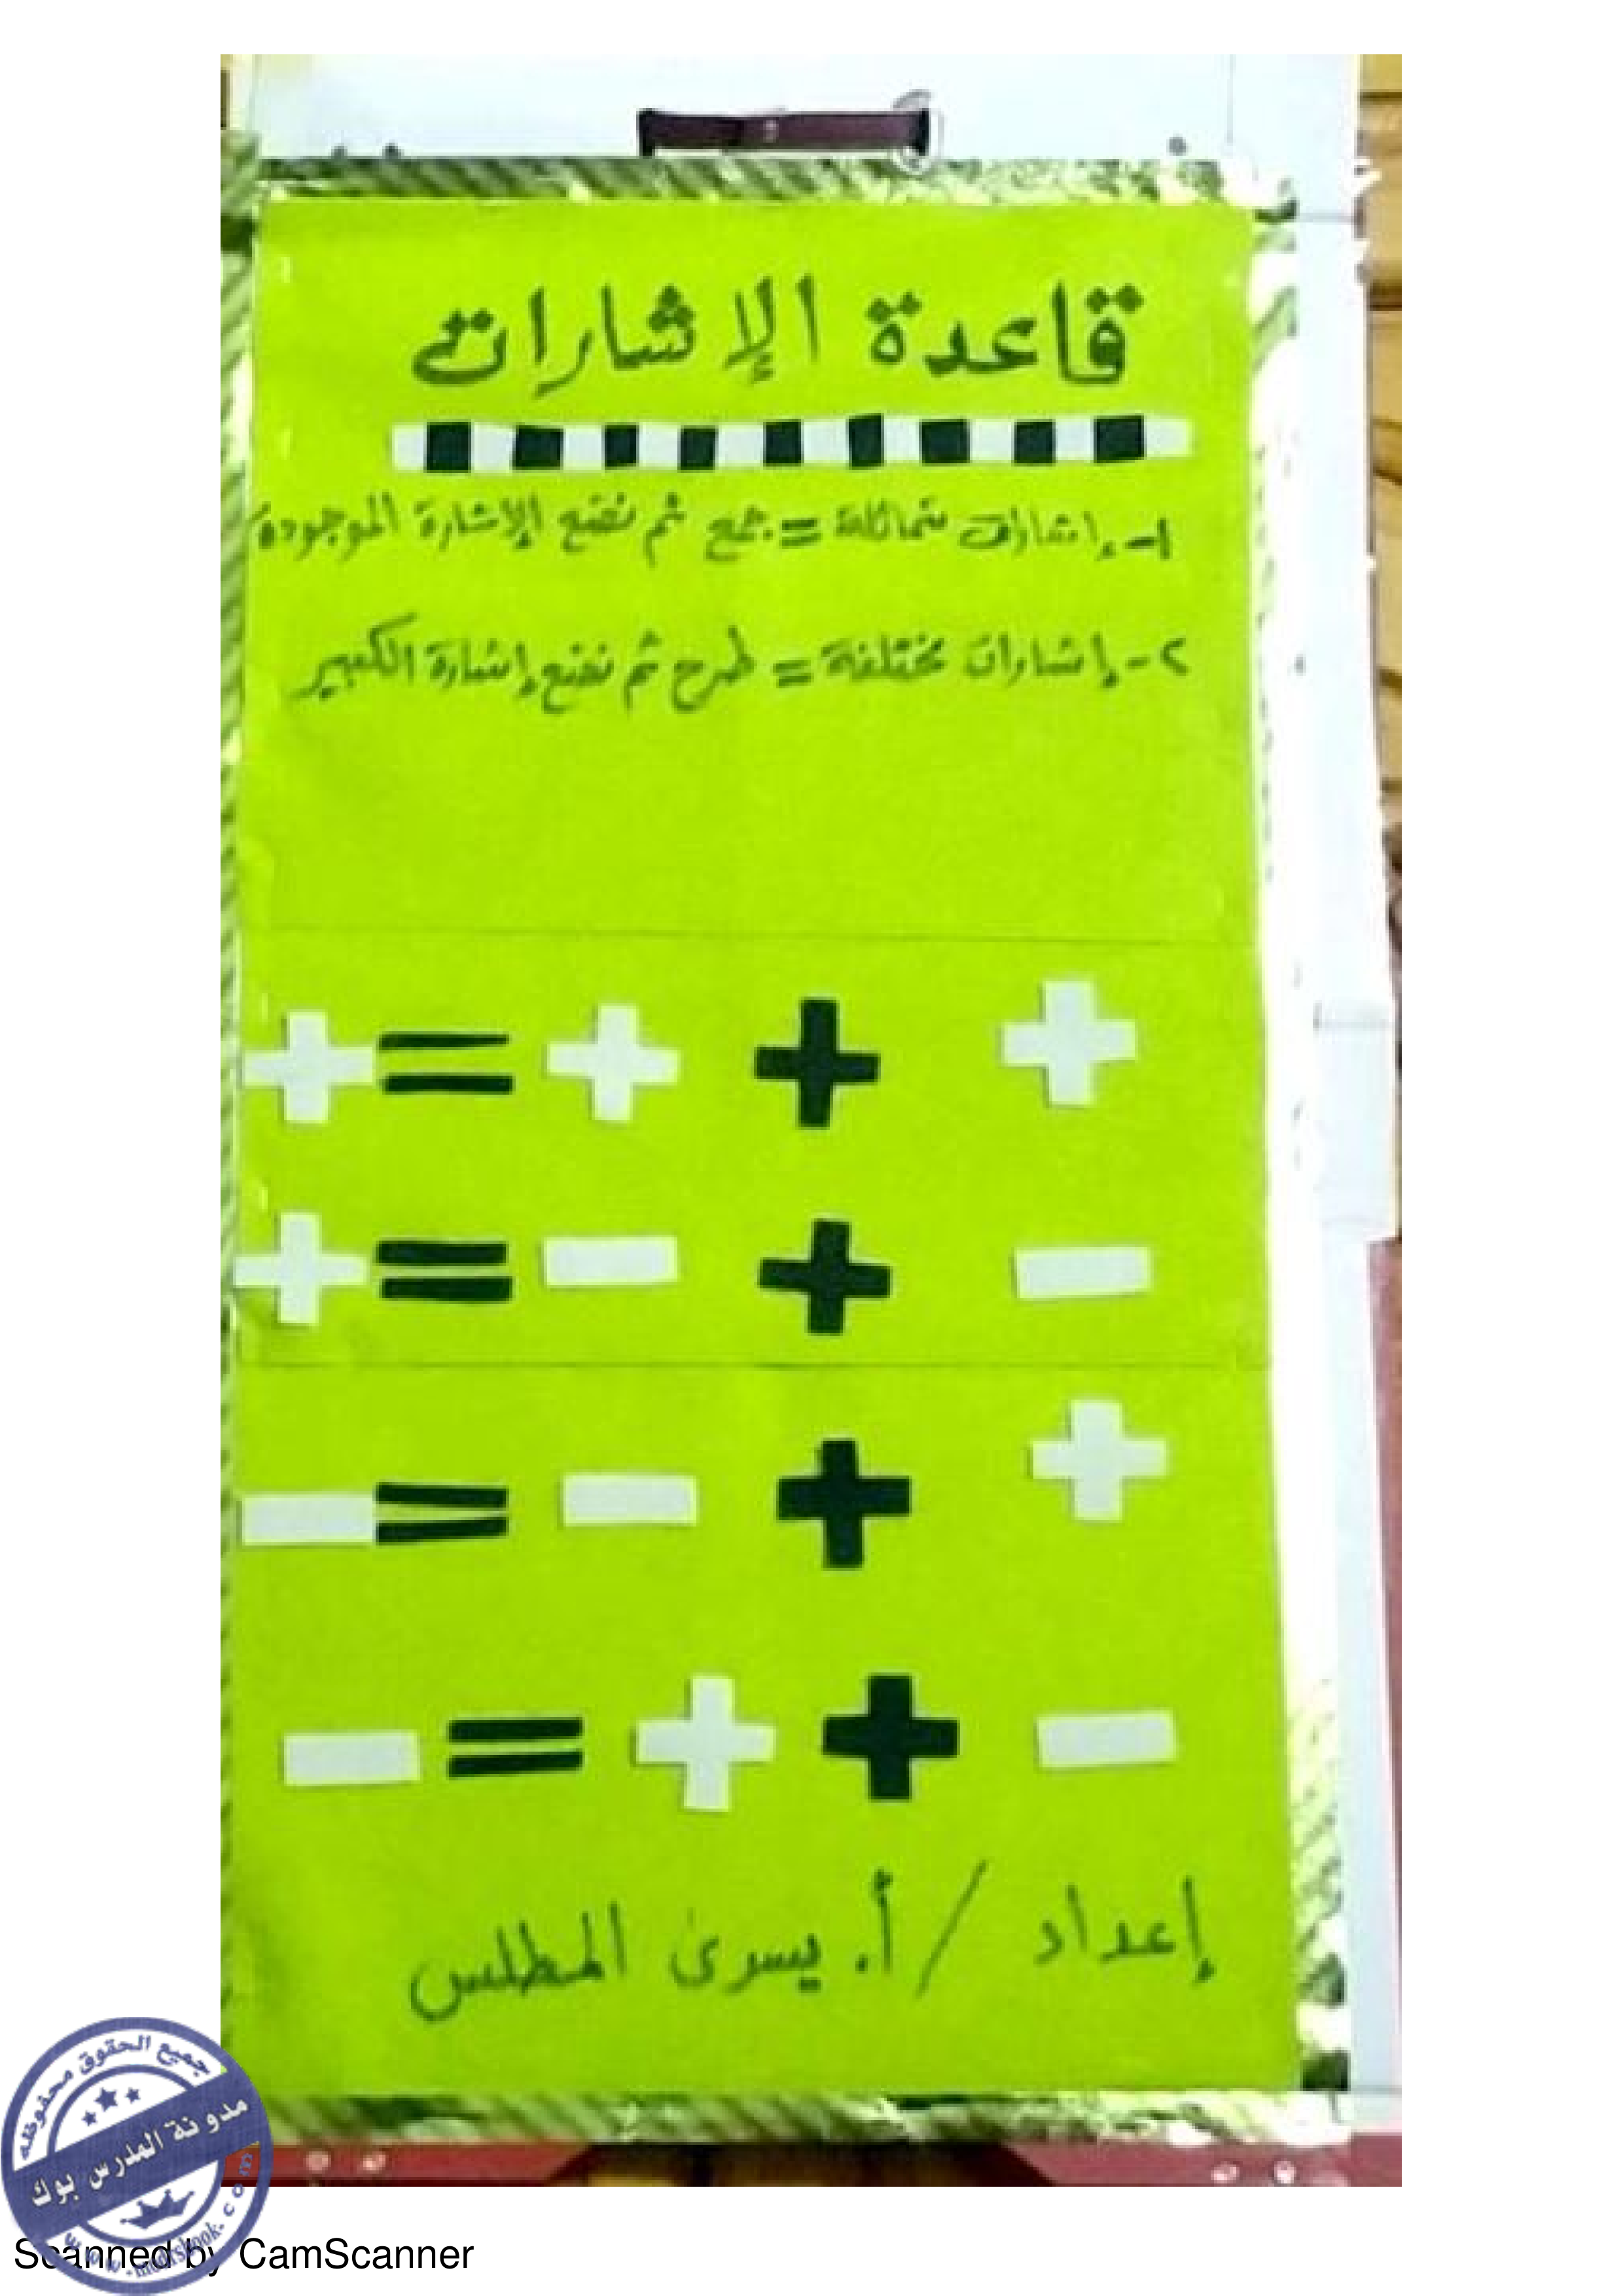 قاعدة الإشارات
١- إشارات متماثلة = جمع ثم نضع الإشارة الموجودة
٢- إشارات مختلفة = طرح ثم نضع إشارة الكبير
+ + + = +
- + - = +
+ + - = -
- + + = -
إعداد / أ. يسرى المطلس
جميع الحقوق محفوظه
مدونة المدرس بوك
www.modrsbook.com
Scanned by CamScanner